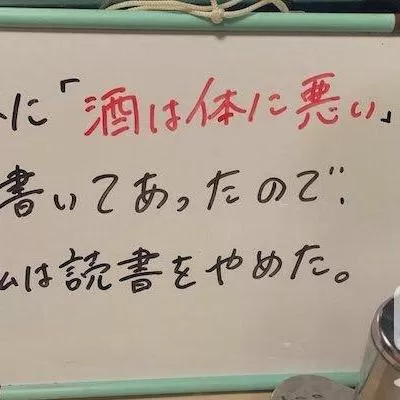 に「酒は体に悪い」
書いてあったので、
は読書をやめた。